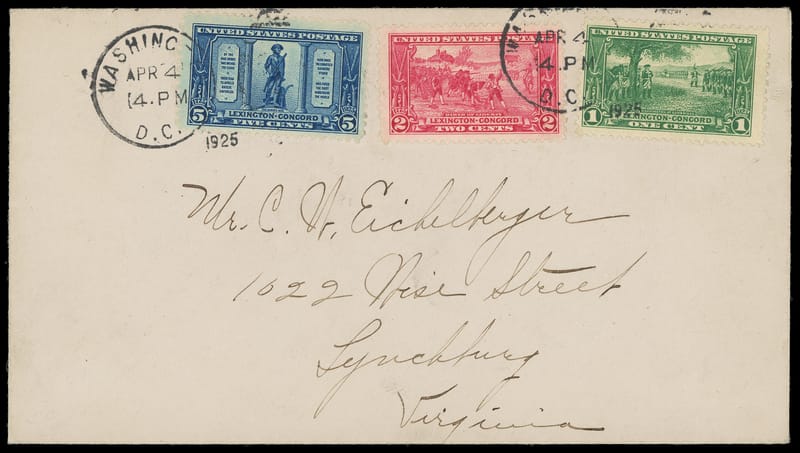 WASHING
APR 4
4. PM
D.C.
1925
UNITED STATES POSTAGE
5 LEXINGTON-CONCORD 5
FIVE CENTS
UNITED STATES POSTAGE
BIRTH OF LIBERTY
2 LEXINGTON-CONCORD 2
TWO CENTS
WASH
APR 4
4. PM
D.C.
1925
UNITED STATES POSTAGE
1 LEXINGTON-CONCORD 1
ONE CENT
Mr. C. W. Eichelberger
1022 Wise Street
Lynchburg
Virginia